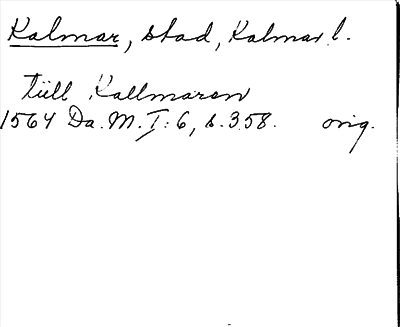 Kalmar, stad, Kalmar l.
tüll Kallmaren
1564 Da. M. I: 6, s. 358. orig.